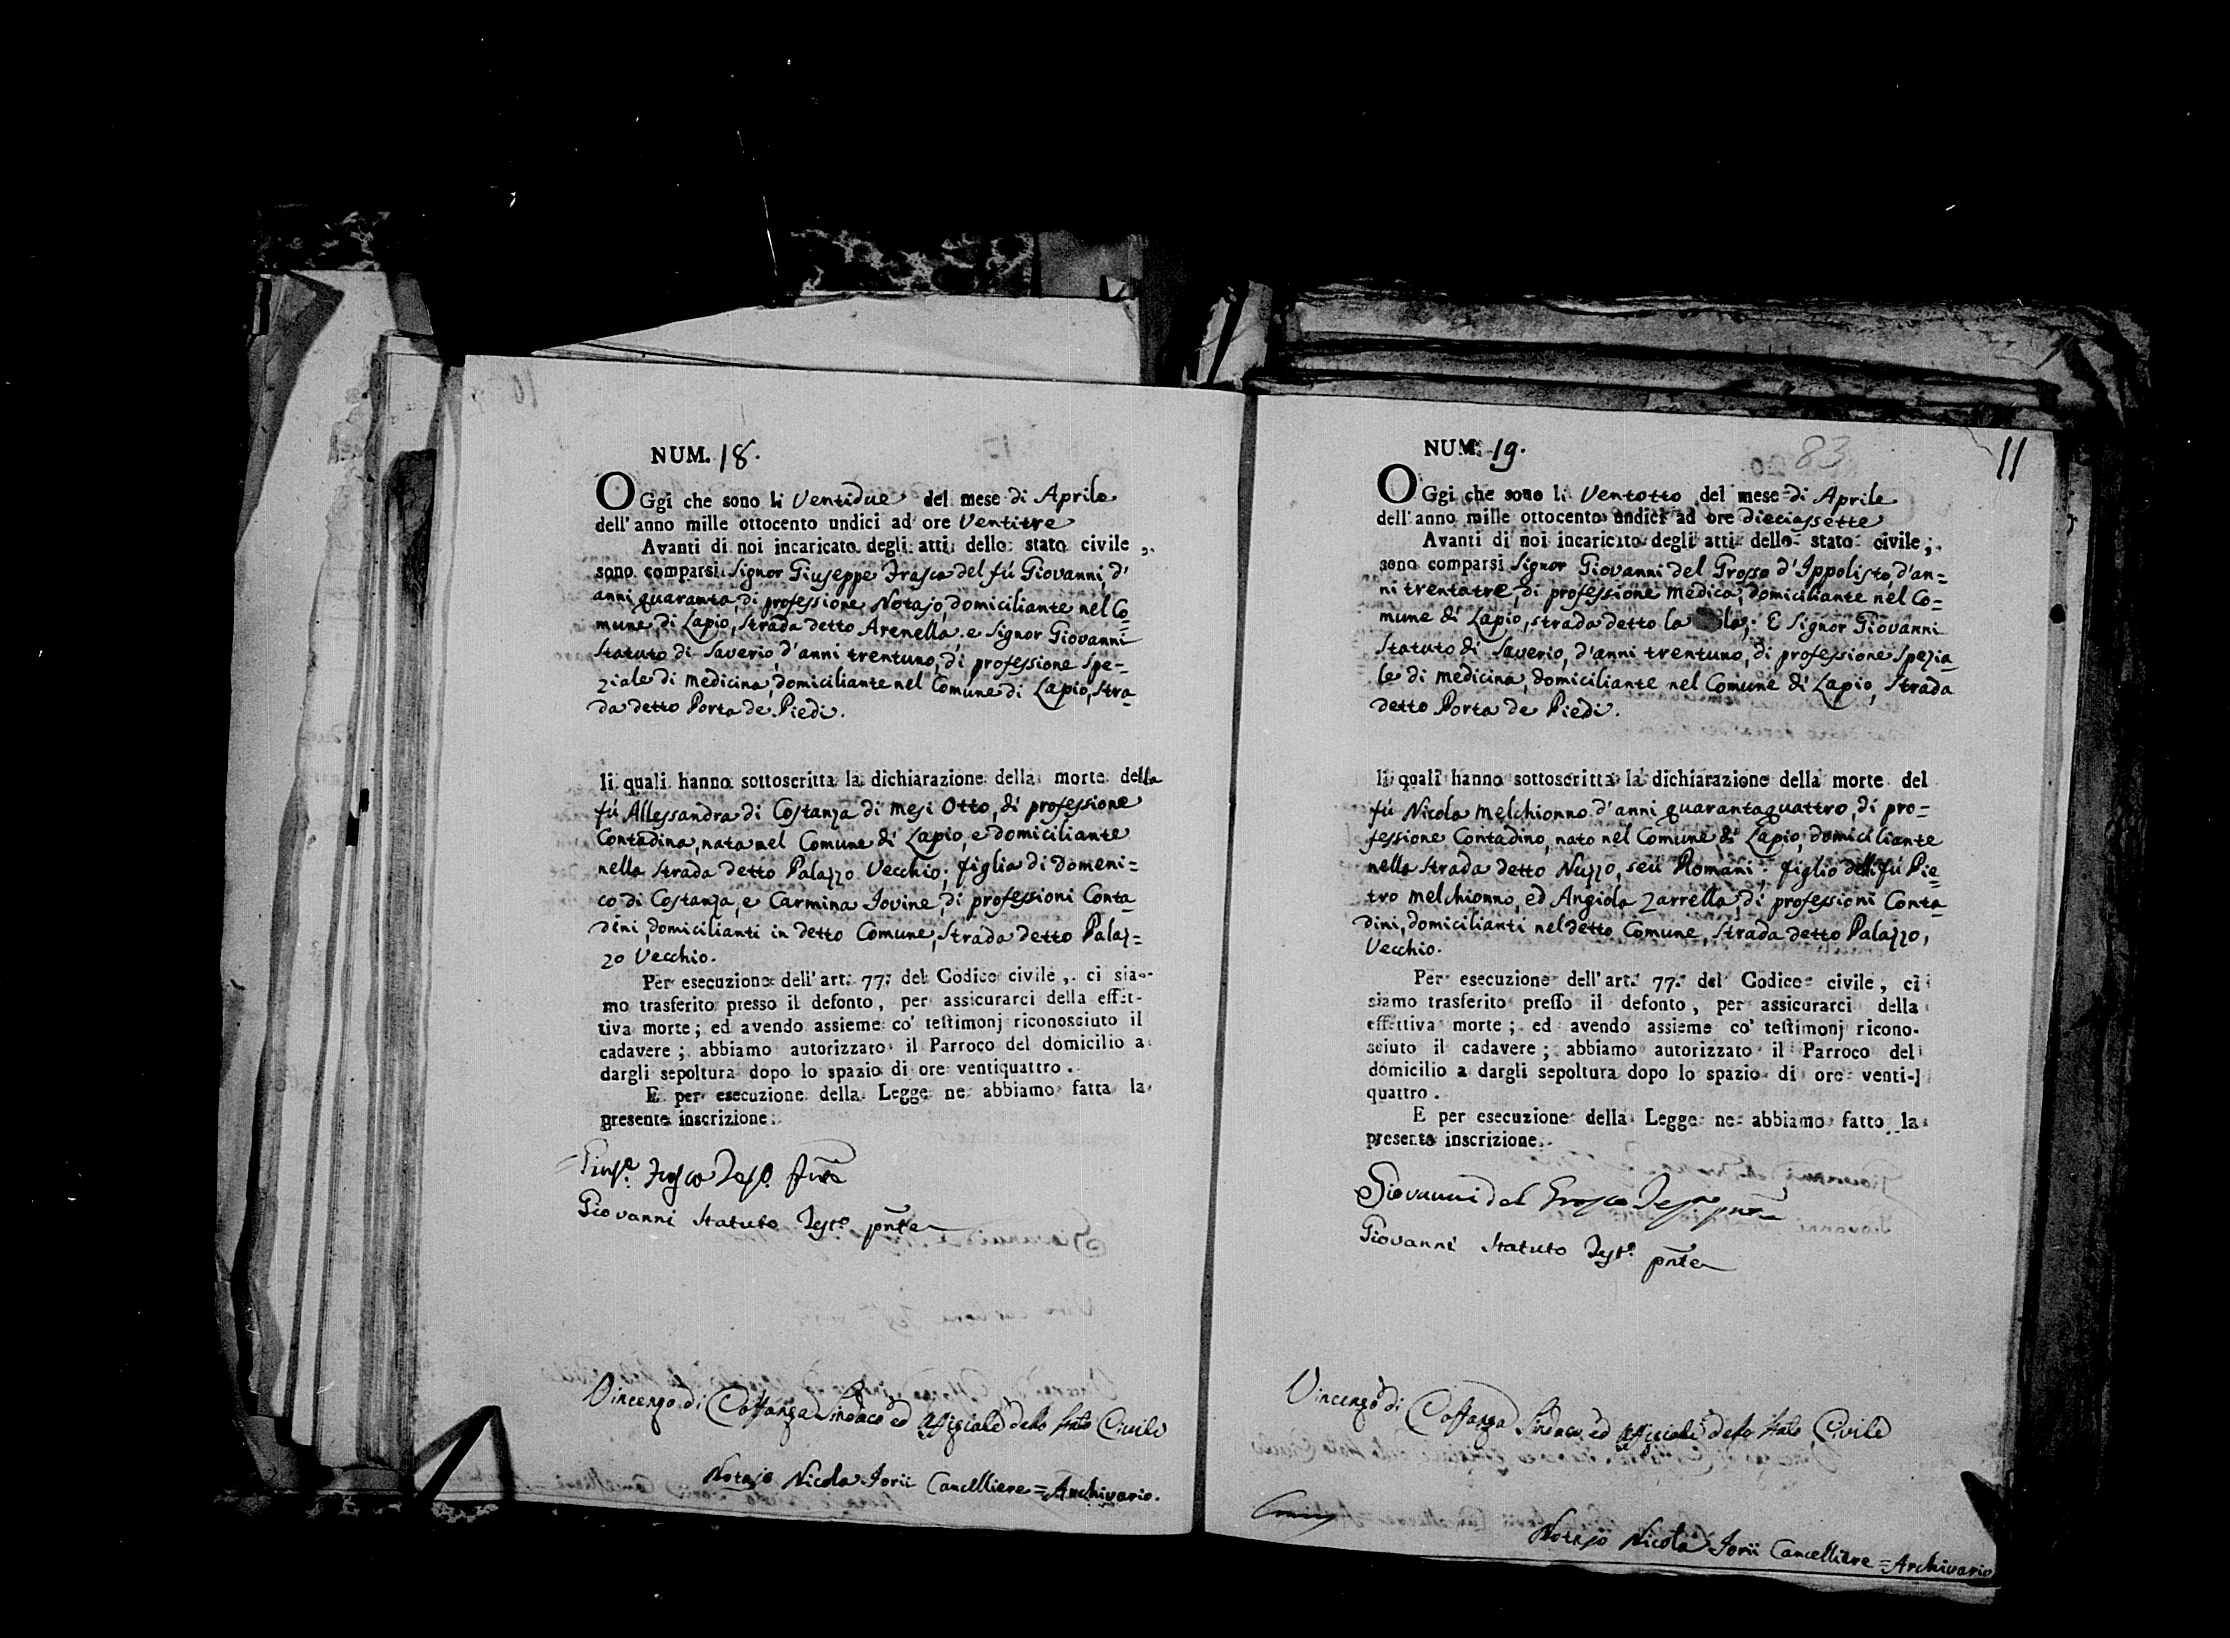 NUM. 18.
OGgi che sono li Ventidue del mese di Aprile
dell' anno mille ottocento undici ad ore Ventitre
Avanti di noi incaricato degli atti dello stato civile,
sono comparsi Signor Giuseppe Frasca del fú Giovanni, d'
anni quaranta, di professione Notajo, domiciliante nel Co=
mune di Lapio, strada detto Arenella. e Signor Giovanni
Statuto di Saverio, d'anni trentuno, di professione Spe=
ziale di medicina, domiciliante nel Comune di Lapio, Stra=
da detto Porta de Piedi.
li quali hanno sottoscritta la dichiarazione della morte della
fú Allessandra di Costanza di mesi Otto, di professione
Contadina, nata nel Comune di Lapio, e domiciliante
nella strada detto Palazzo Vecchio; figlia di Domeni=
co di Costanza, e Carmina Iovine, di professioni Conta=
dini, domicilianti in detto Comune, Strada detto Palaz=
zo Vecchio.
Per esecuzione dell' art. 77. del Codice civile, ci sia-
mo trasferito presso il defonto, per assicurarci della effet-
tiva morte; ed avendo assieme co' testimonj riconosciuto il
cadavere; abbiamo autorizzato il Parroco del domicilio a
dargli sepoltura dopo lo spazio di ore ventiquattro.
E per esecuzione della Legge ne abbiamo fatta la
presente inscrizione.
Giuspe. Frasca Testo. pnte
Giovanni Statuto Testo. pnte
Vincenzo di Costanza Sindaco ed Offiziale dello stato Civile
Notajo Nicola Iorii Cancelliere = Archivario.
83
11
NUM. 19.
OGgi che sono li Ventotto del mese di Aprile
dell' anno mille ottocento undici ad ore dieciassette
Avanti di noi incaricato degli atti dello stato civile,
sono comparsi Signor Giovanni del Grosso d'Ippolisto, d'an=
ni trentatre, di professione medica, domiciliante nel Co=
mune di Lapio, strada detto la E Signor Giovanni
Statuto di Saverio, d'anni trentuno, di professione Spezia=
le di medicina, domiciliante nel Comune di Lapio, Strada
detto Porta de Piedi.
li quali hanno sottoscritta la dichiarazione della morte del
fú Nicola Melchionno d'anni quarantaquattro, di pro=
fessione Contadino, nato nel Comune di Lapio, domiciliante
nella strada detto Nuzzo, seú Romani; figlio delli fú Pie=
tro Melchionno, ed Angiola Zarrella, di professioni Conta=
dini, domicilianti nel detto Comune, Strada detto Palazzo,
Vecchio.
Per esecuzione dell' art. 77. del Codice civile, ci
siamo trasferito presso il defonto, per assicurarci della
effettiva morte; ed avendo assieme co' testimonj ricono-
sciuto il cadavere; abbiamo autorizzato il Parroco del
domicilio a dargli sepoltura dopo lo spazio di ore venti-
quattro.
E per esecuzione della Legge ne abbiamo fatto la
presente inscrizione.
Giovanni del Grosso Testo. pnte
Giovanni Statuto Testo. pnte
Vincenzo di Costanza Sindaco ed Officiale dello stato Civile
Notajo Nicola Iorii Cancelliere = Archivario